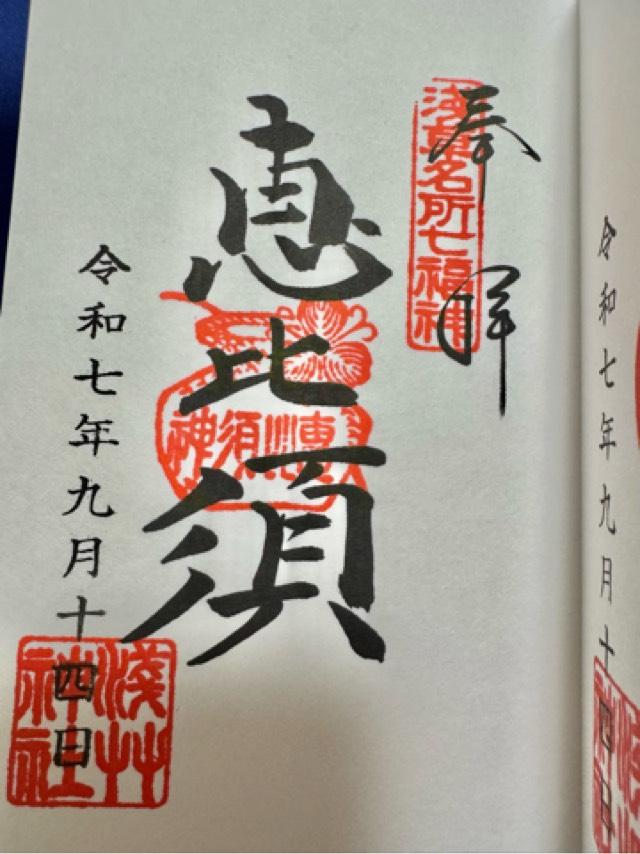 奉拝
浅草名所七福神
恵比須
恵比須神
令和七年九月十四日
浅草神社
令和七年九月十四日